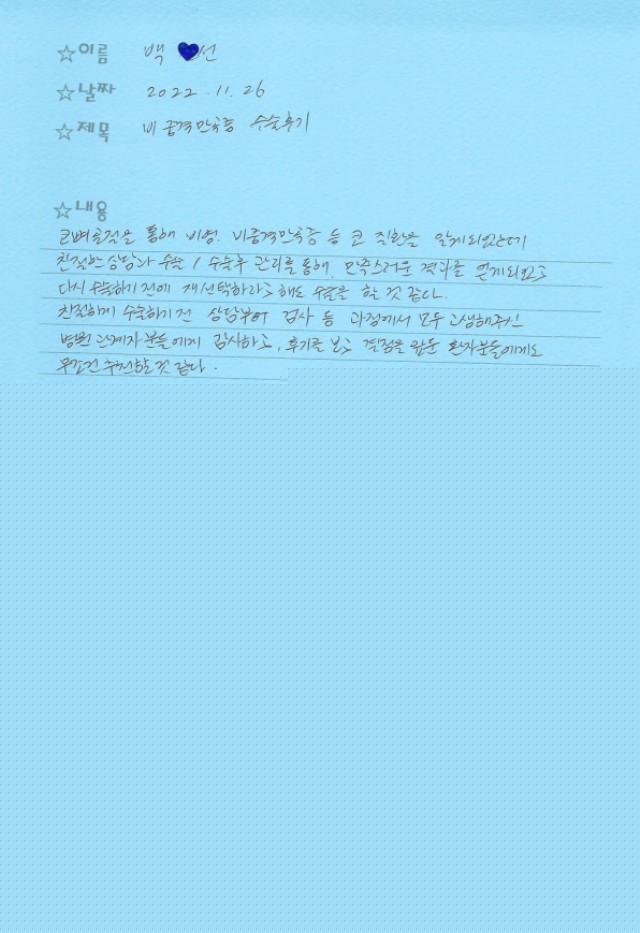 ☆이름 백 💙선
☆날짜 2022.11.26
☆제목 비중격만곡증 수술후기
☆내용
코벼음길을 통해 비염, 비중격만곡증 등 코 질환을 알게되었는데
친절한 상담과 수술 / 수술후 관리를 통해 만족스러운 결과를 얻게되었고
다시 수술하기 전에 재선택하라고 해도 수술을 할 것 같다.
친절하게 수술하기전 상담부터 검사 등 과정에서 모두 고생해주신
병원 관계자분들에게 감사하고, 후기를 보고 결정을 앞둔 환자분들에게도
무조건 추천할것 같다.